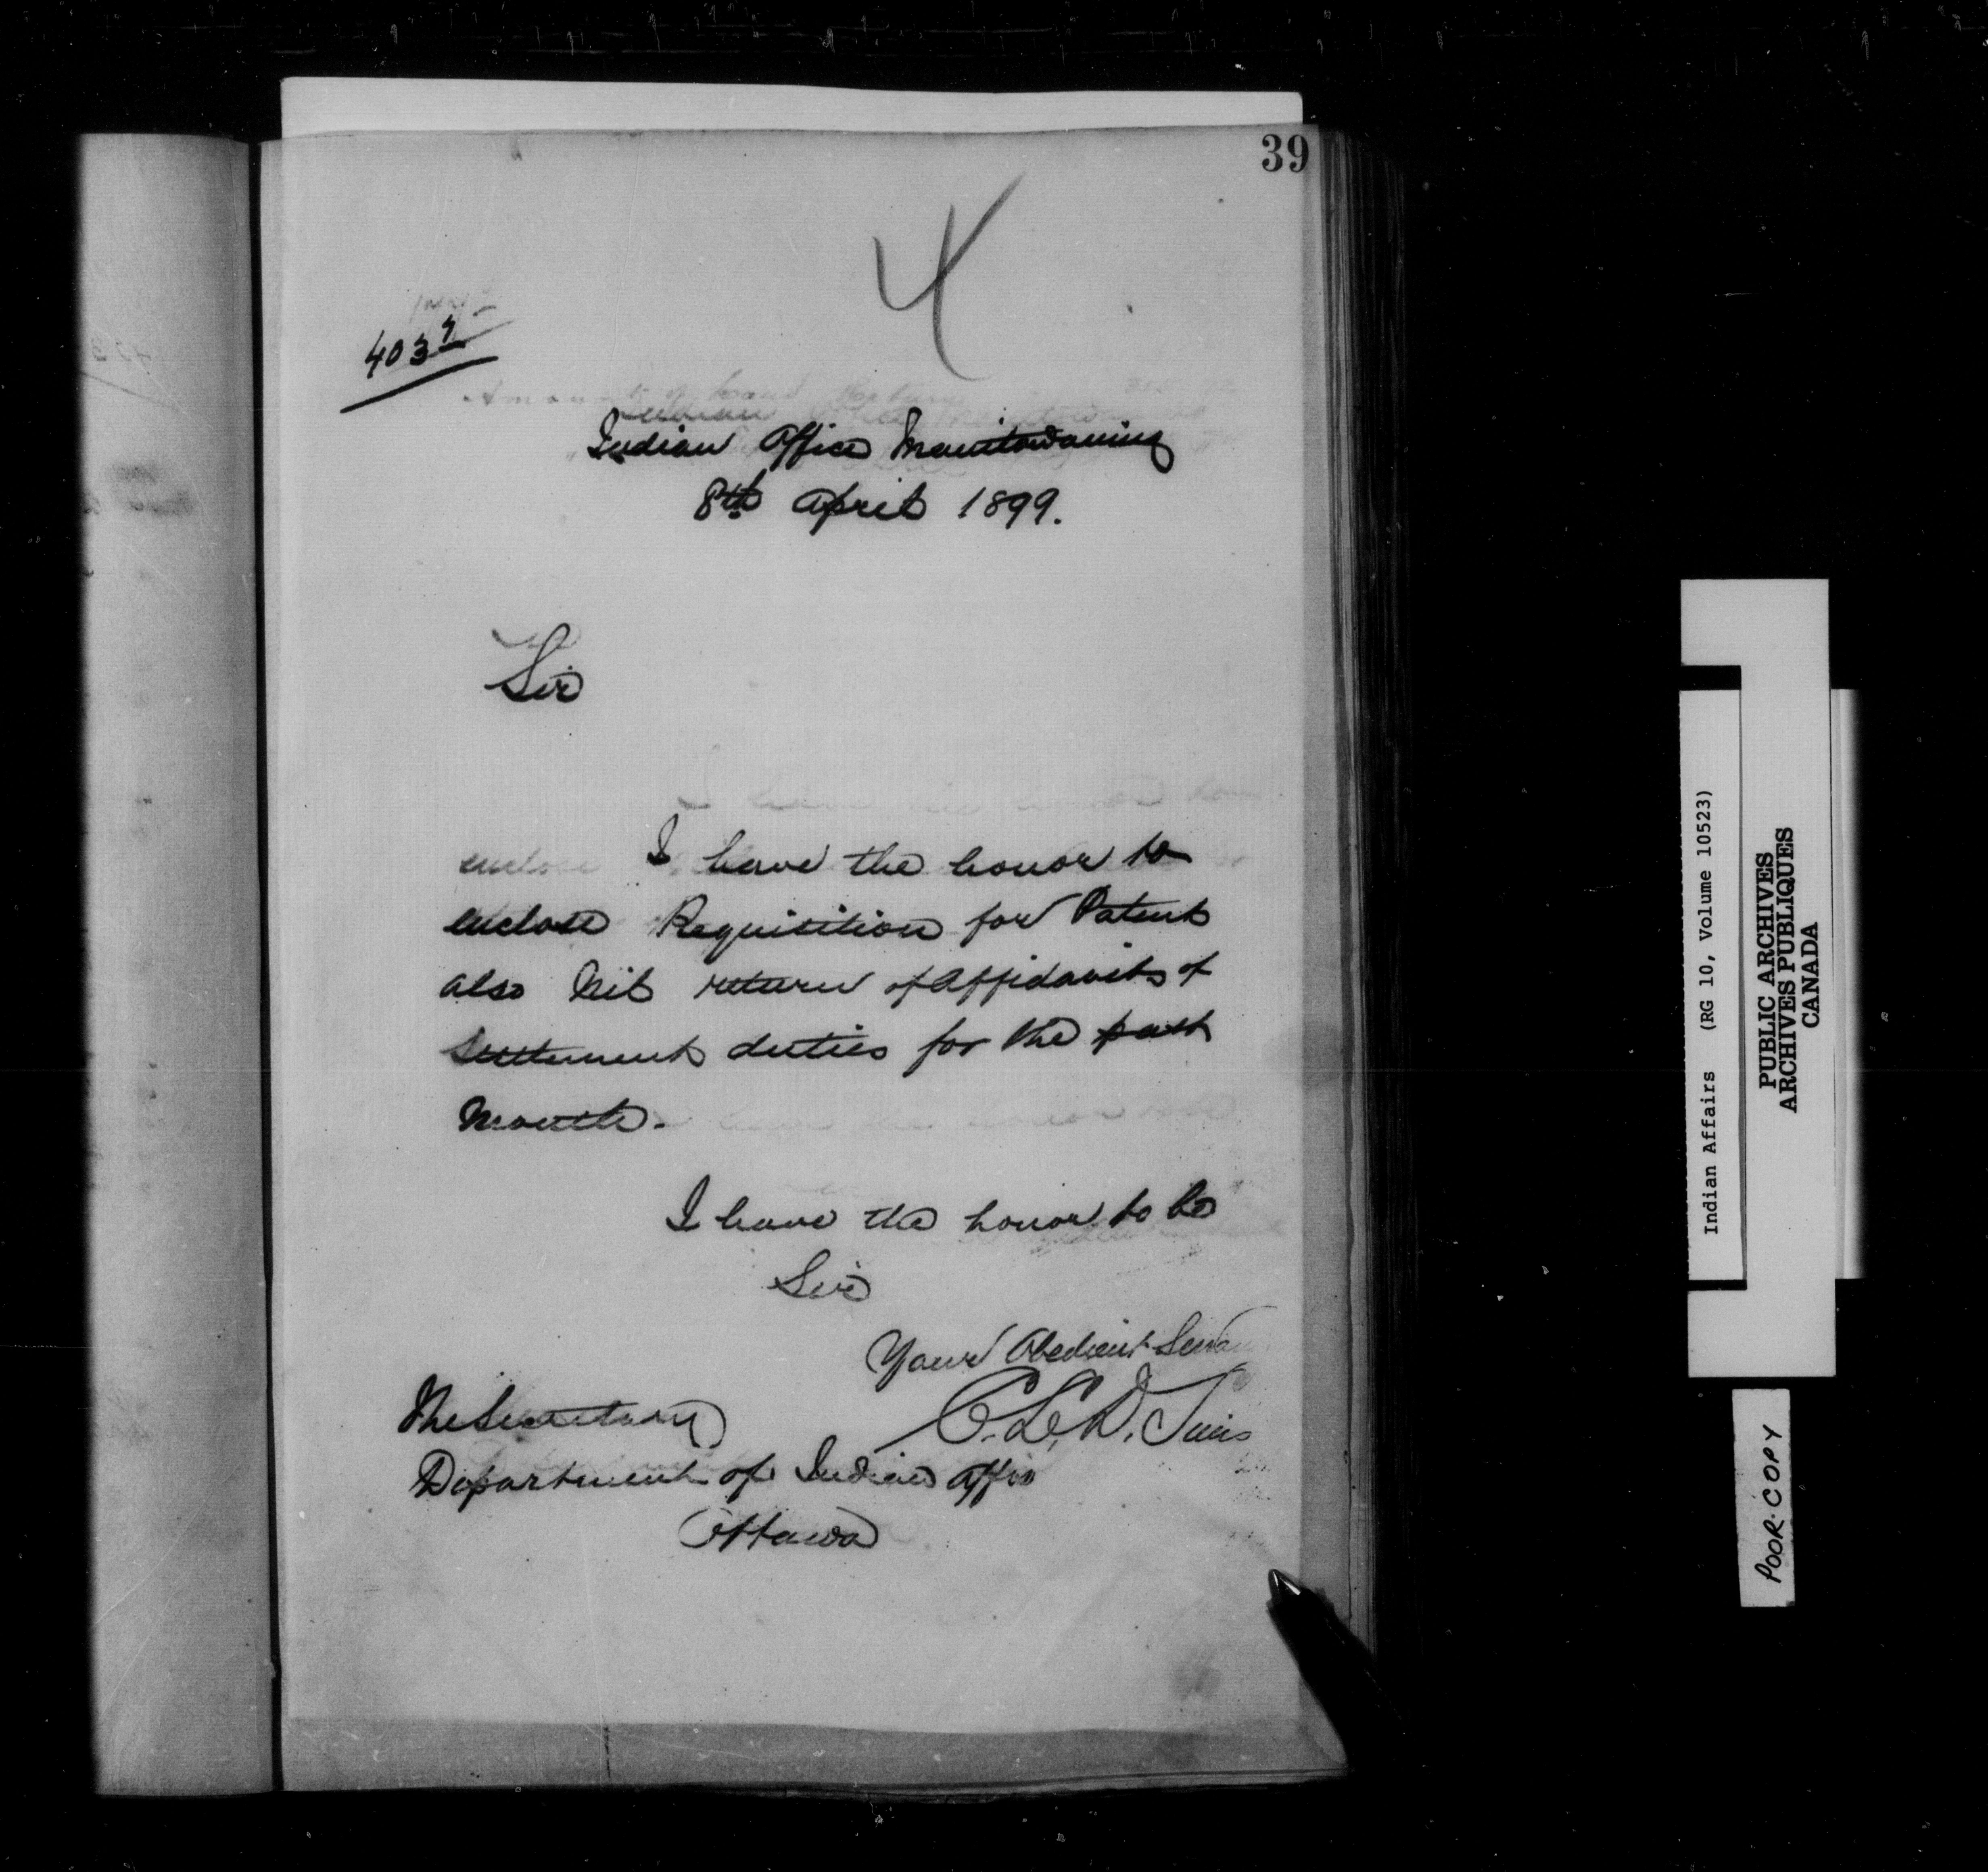 39
4
4037
Indian Office Manitowaning
8th April 1899.
Sir
I have the honor to
enclose Requisition for Patent
also Nil return of Affidavits of
Settlement duties for the past
Month.
I have the honor to be
Sir
Your Obedient Serva
C. L. D. Sims
The Secretary
Department of Indian Affrs
Ottawa
Indian Affairs (RG 10, Volume 10523)
PUBLIC ARCHIVES
ARCHIVES PUBLIQUES
CANADA
POOR COPY